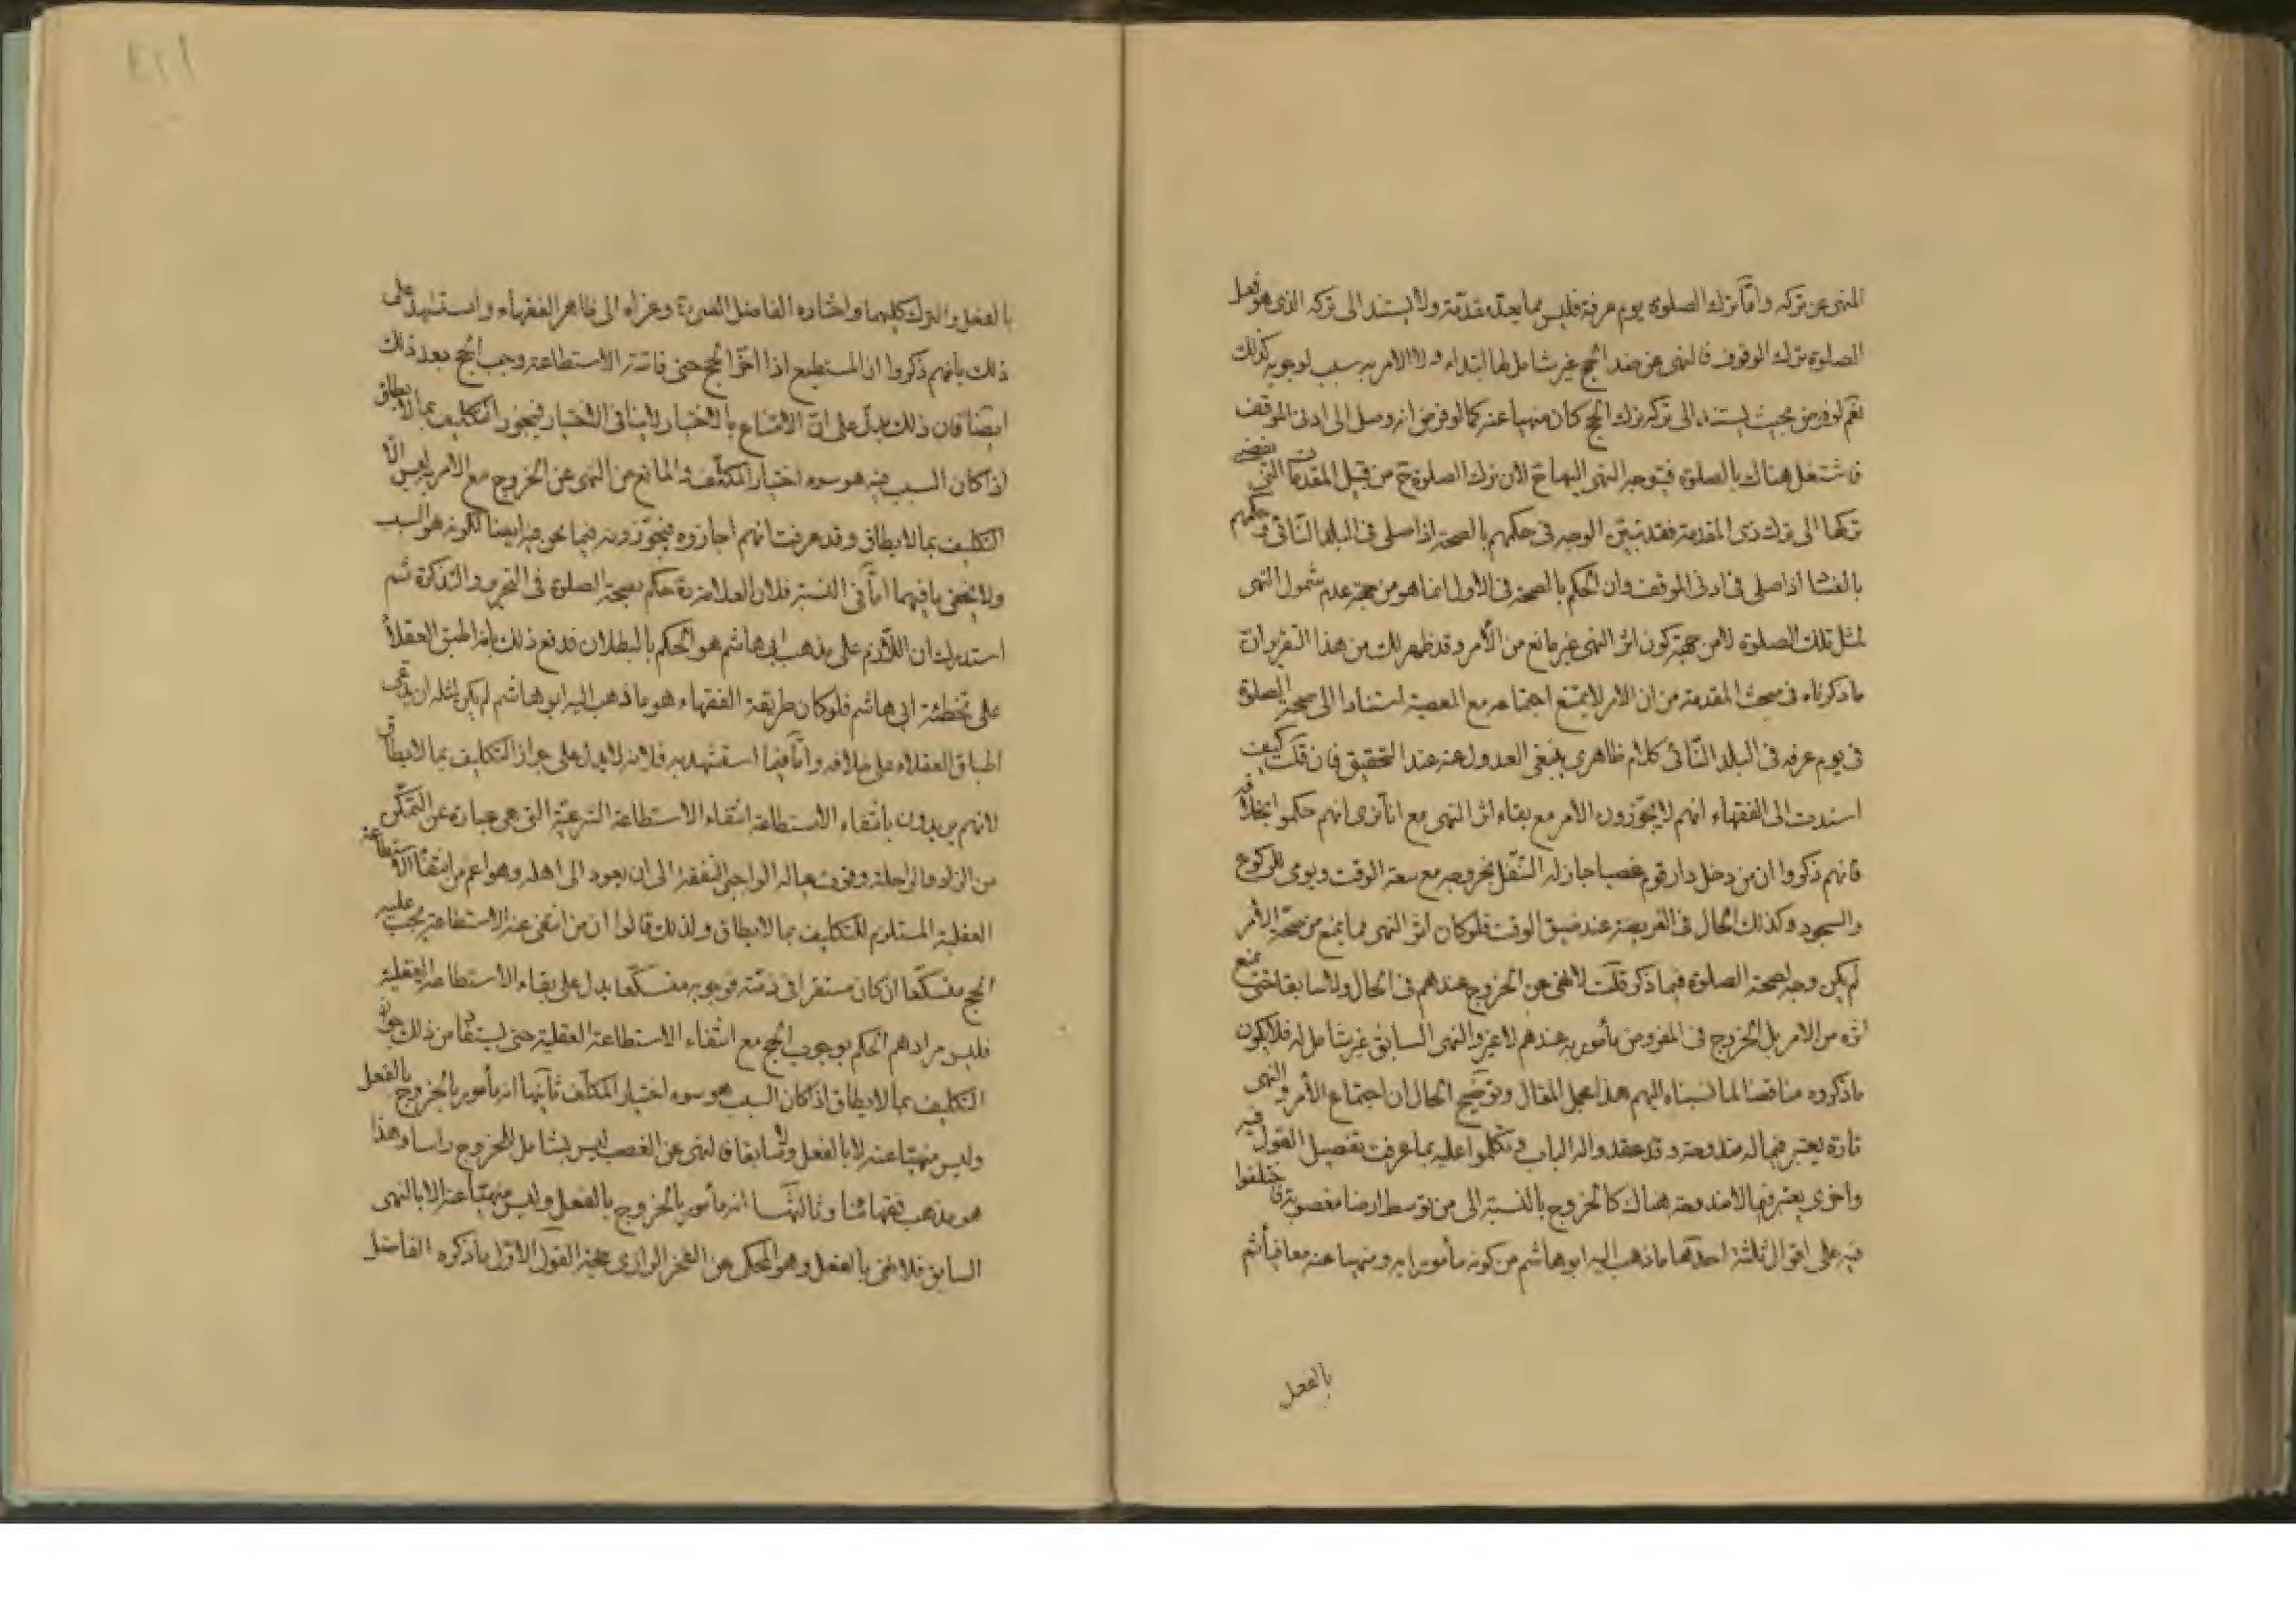 المنهى عن تركه وامّا ترك الصلوة يوم عرفة فليس مما يعدّ مقدّمة ولا يستند الى تركه الذى هو فعل
الصلوة ترك الوقوف فالنهى عن ضد الحج غير شامل لها ابتداء ولا الامر به سبب لوجوبه كذلك
نعم لو فرض بحيث يستند الى تركه ترك الحج كان منهيا عنه كما لو فرض انه وصل الى ادنى الموقف
فاشتغل هناك بالصلوة فيتوجه النهى اليها ح لان ترك الصلوة ح من قبيل المقدمات التى يفضى
تركها الى ترك ذى المقدمة فقد تبيّن الوجه فى حكمهم بالصحة اذا صلى فى البلد النّائى وحكمهم
بالفساد اذا صلى فى ادنى الموقف وان الحكم بالصحة فى الاول انما هو من جهة عدم شمول النهى
لمثل تلك الصلوة لا من جهة كون اثر النهى غير مانع من الأمر وقد ظهر لك من هذا التقرير انّ
ما ذكرناه فى مبحث المقدمة من ان الامر لا يمتنع اجتماعه مع المعصية استنادا الى صحة الصلوة
فى يوم عرفه فى البلد النّائى كلام ظاهرى ينبغى العدول عنه عند التحقيق فان قلت كيف
اسندت الى الفقهاء انهم لا يجوّزون الأمر مع بقاء اثر النهى مع انّا نرى انهم حكموا بخلافه
فانهم ذكروا ان من دخل دار قوم غصبا جاز له التنفّل بخروجه مع سعة الوقت ويومى للركوع
والسجود وكذلك الحال فى الفريضة عند ضيق الوقت فلو كان اثر النهى مما يمنع من صحّة الأمر
لم يكن وجه لصحة الصلوة فيما ذكر قلت لا نهى عن الخروج عندهم فى الحال ولا سابقا حتى يمنع
اثره من الامر بل الخروج فى المفروض مأمور به عندهم لا غير والنهى السابق غير شامل له فلا يكون
ما ذكروه مناقضا لما نسبناه اليهم هذا مجمل المقال وتوضيح الحال ان اجتماع الأمر والنهى
تارة يعتبر فيما له مندوحة وقد عقدوا له الباب وتكلّموا عليه بما عرفت تفصيل القول فيه
واخرى يعتبر فيما لا مندوحة هناك كالخروج بالنسبة الى من توسط ارضا مغصوبة فاختلفوا
فيه على اقوال ثلثة احدها ما ذهب اليه ابو هاشم من كونه مأمورا به ومنهيا عنه معا فيأثم
بالفعل
بالفعل والترك كليهما واختاره الفاضل القمى ره وعزاه الى ظاهر الفقهاء واستشهد على
ذلك بانهم ذكروا ان المستطيع اذا اخّر الحج حتى فاتته الاستطاعة وجب الحج بعد ذلك
ايضا فان ذلك يدلّ على انّ الامتناع بالاختيار لا ينافى الاختيار فيجوز التكليف بما لا يطاق
اذا كان السبب فيه هو سوء اختيار المكلّف والمانع من النهى عن الخروج مع الامر به ليس الّا
التكليف بما لا يطاق وقد عرفت انهم اجازوه فيجوّزونه فيما نحن فيه ايضا لكونه هو السبب
ولا يخفى ما فيهما امّا فى النسبة فلان العلامة ره حكم بصحة الصلوة فى التحرير والتذكرة ثم
استدرك ان اللّازم على مذهب ابى هاشم هو الحكم بالبطلان فدفع ذلك بانه اطبق العقلاء
على تخطئة ابى هاشم فلو كان طريقة الفقهاء هو ما ذهب اليه ابو هاشم لم يكن لمثله ان يدّعى
اطباق العقلاء على خلافه وامّا فيما استشهد به فلانه لا يدل على جواز التكليف بما لا يطاق
لانهم يريدون بانتفاء الاستطاعة انتفاء الاستطاعة الشرعيّة التى هى عبارة عن التمكّن
من الزاد والراحلة وقوت عياله الواجبى النفقة الى ان يعود الى اهله وهو اعم من انتفاء الاستطاعة
العقلية المستلزم للتكليف بما لا يطاق ولذلك قالوا ان من انتفى عنه الاستطاعة يجب عليه
الحج متسكّعا ان كان مستقرا فى ذمّته فوجوبه متسكّعا يدل على بقاء الاستطاعة العقلية
فليس مرادهم الحكم بوجوب الحج مع انتفاء الاستطاعة العقلية حتى يستفاد من ذلك جواز
التكليف بما لا يطاق اذا كان السبب هو سوء اختيار المكلّف ثانيها انه مأمور بالخروج بالفعل
وليس منهيّا عنه لا بالفعل ولا سابقا فالنهى عن الغصب ليس بشامل للخروج راسا وهذا
هو مذهب فقهائنا وثالثها انه مأمور بالخروج بالفعل وليس منهيّا عنه الا بالنهى
السابق فلا نهى بالفعل وهو المحكى عن الفخر الرازى حجة القول الاوّل ما ذكره الفاضل